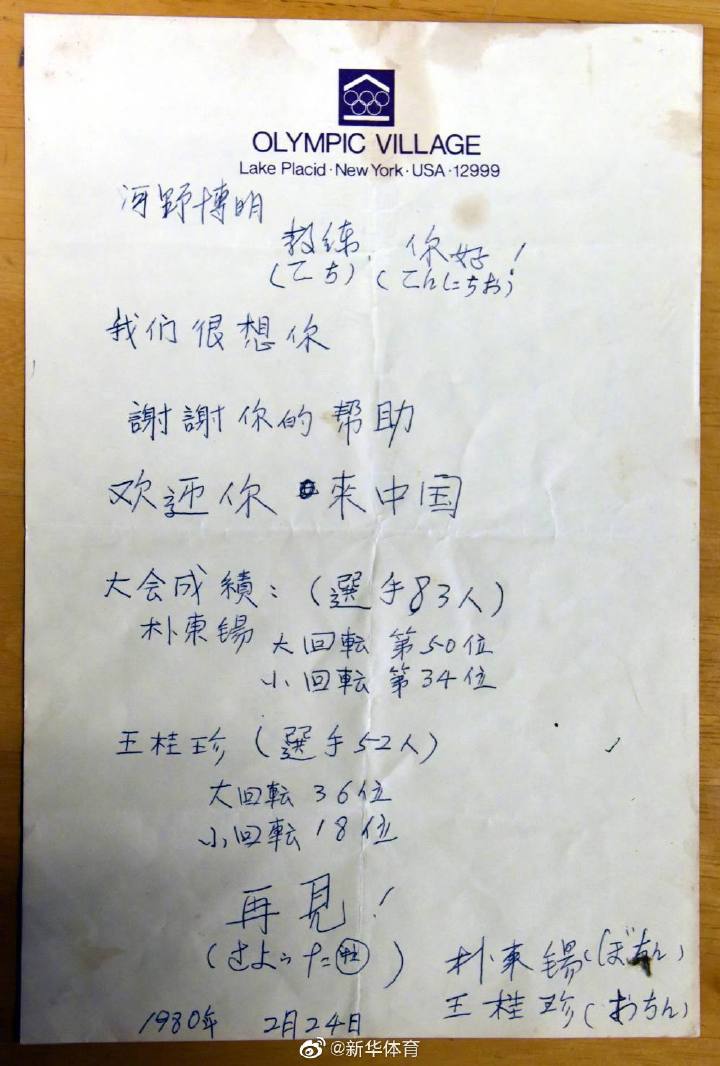 OLYMPIC VILLAGE
Lake Placid · New York · USA · 12999
河野博明
教练 . 你好!
(こち) (こんにちお)
我们很想你
謝謝你的帮助
欢迎你 来中国
大会成績: (選手83人)
朴東锡 大回転 第50位
小回転 第34位
王桂珍 (選手52人)
大回転 36位
小回転 18位
再見!
(さよ )
朴東锡 (ぼちん)
王桂珍 (おちん)
1980年 2月24日
@新华体育